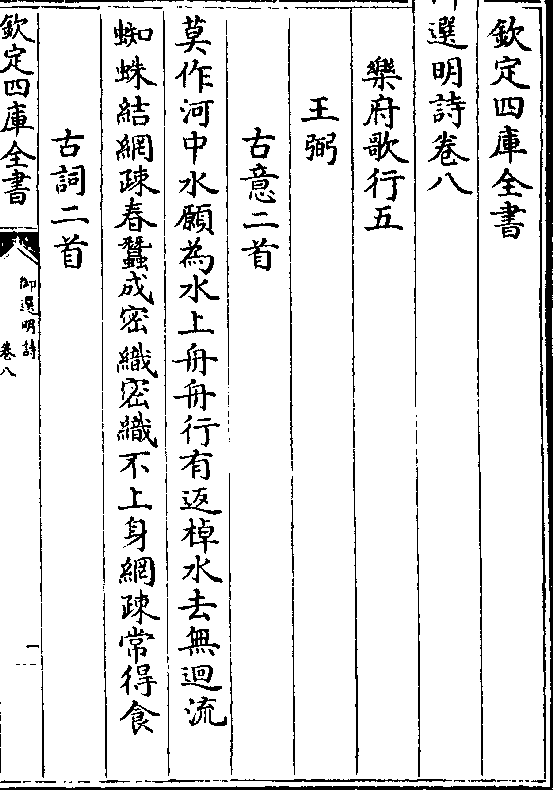 欽定四庫全書
選明詩卷八
樂府歌行五
王弼
古意二首
莫作河中水願為水上舟舟行有返棹水去無迴流
蜘蛛結網疎春蠶成密織密織不上身網疎常得食
古詞二首
欽定四庫全書
御選明詩
卷八
一